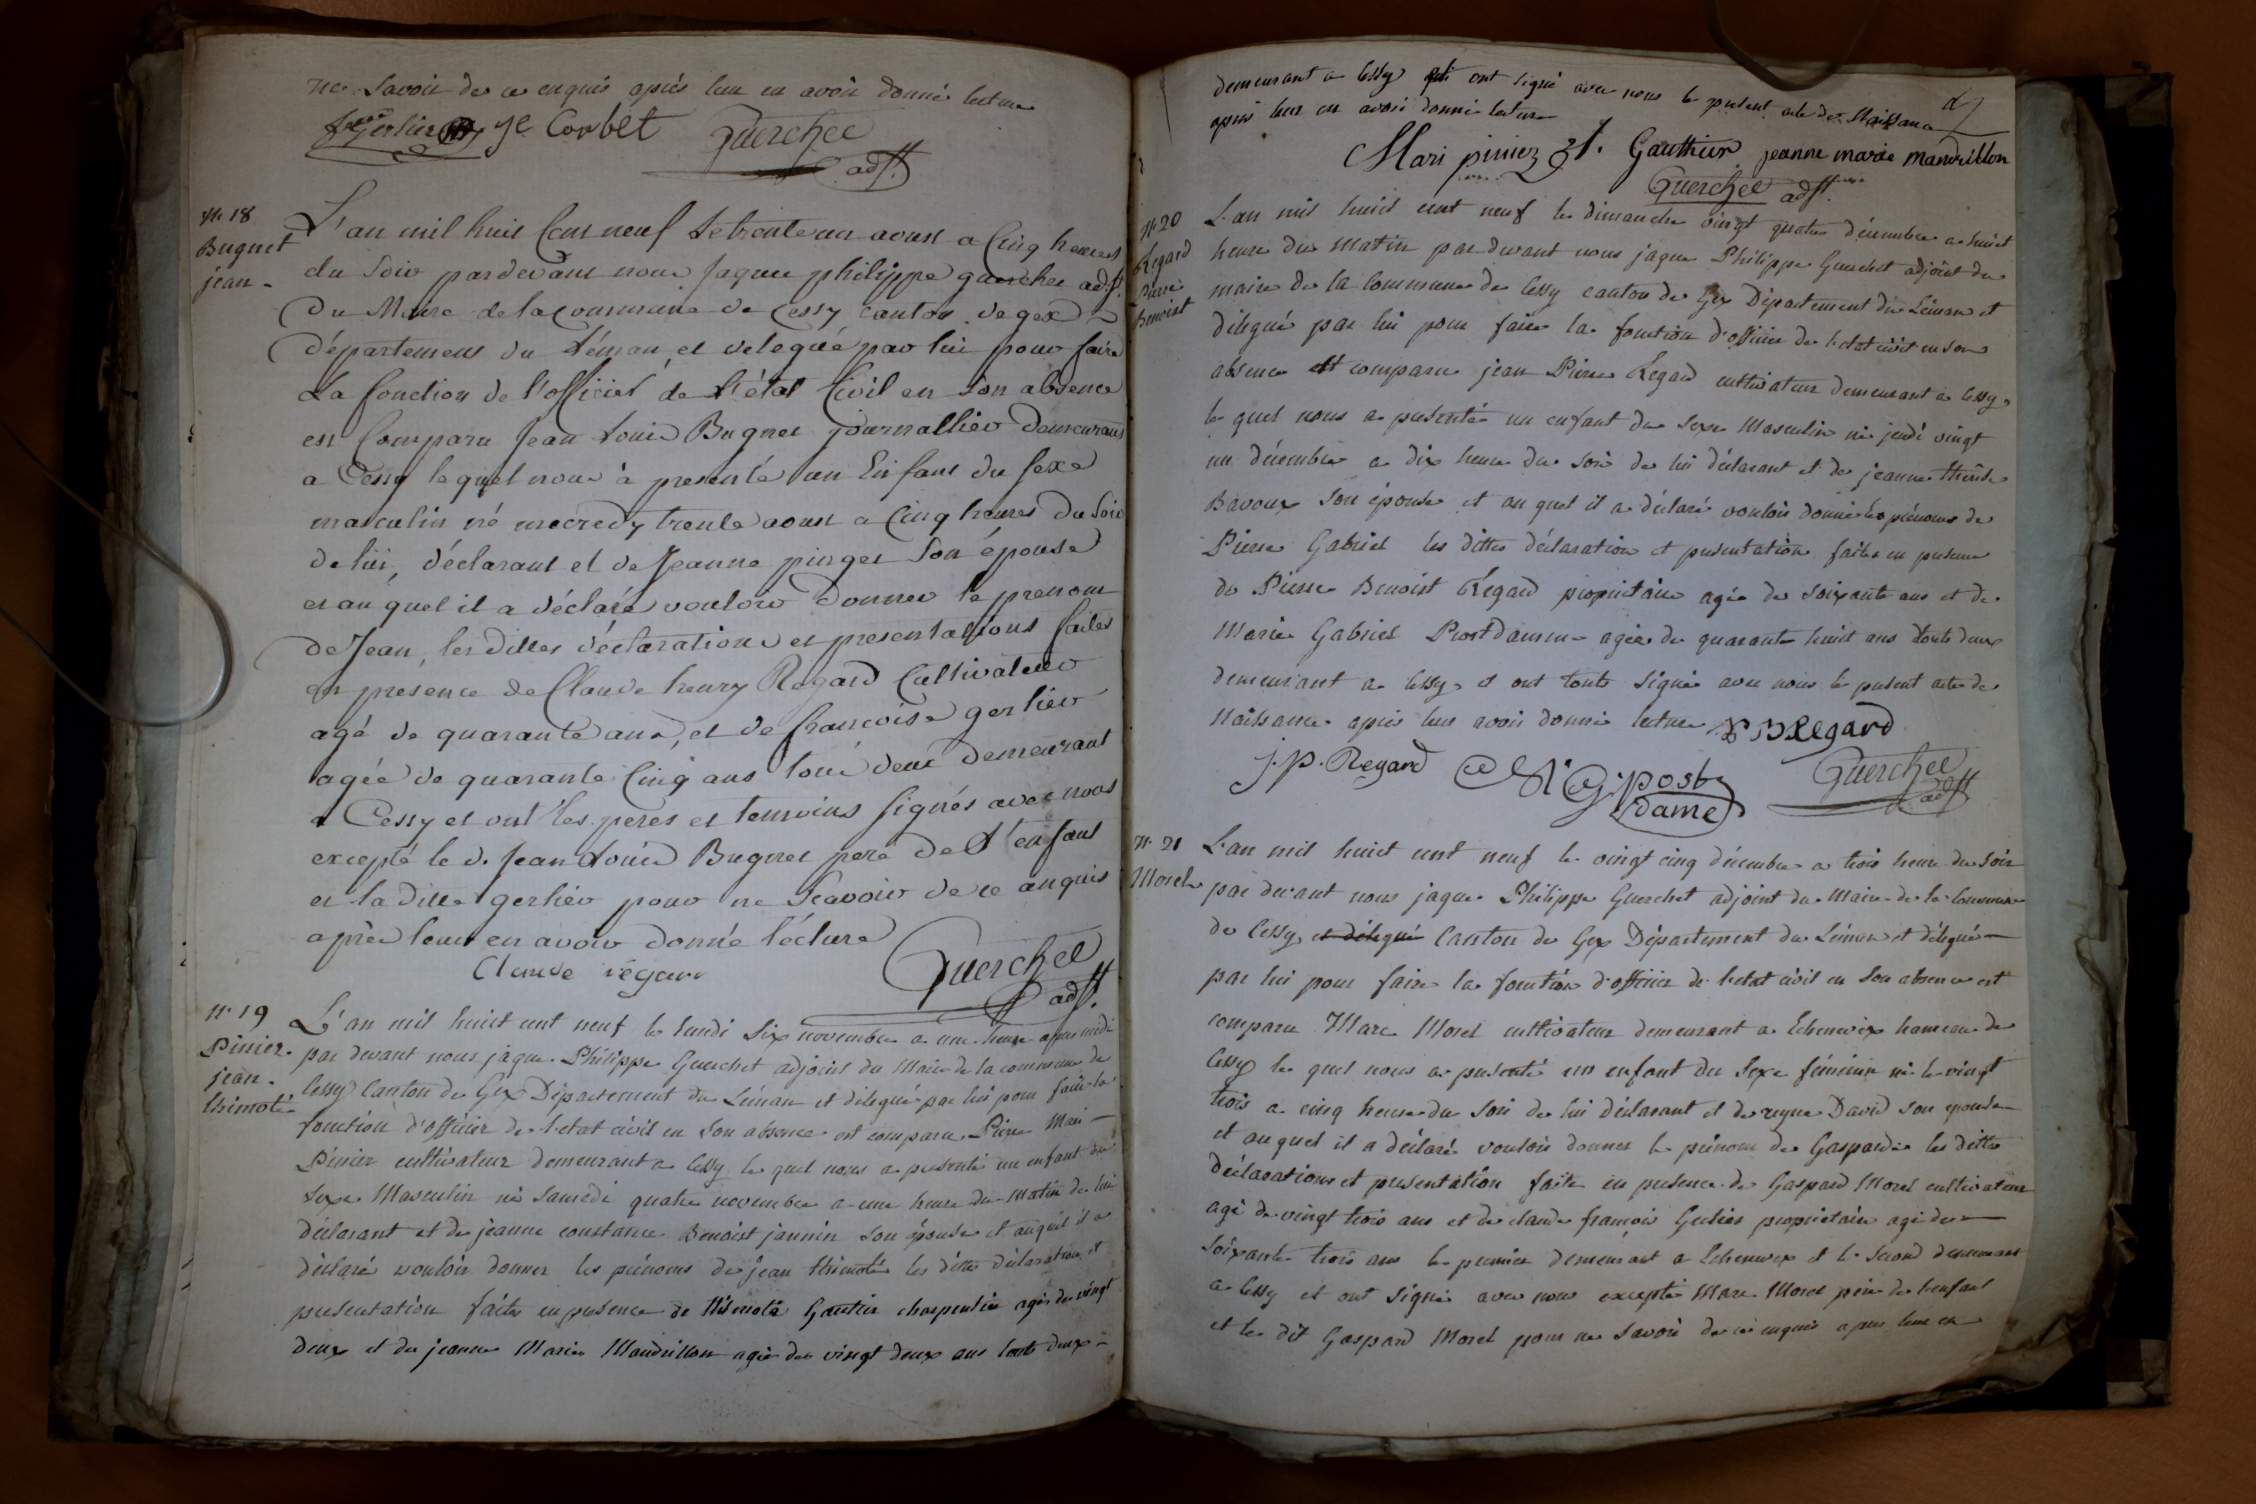 ne Savoir de ce enquis après leur en avoir donné lecture
Gerlier je Corbet Guerchet
adjt.
N. 18
Bugnet
jean
L'an mil huit Cent neuf le trente un aoust a Cinq heures
du Soir pardevant nous Jaques philippe guerchet adjt.
Du Maire de la Commune de Cessy canton de gex
département du Léman, et delegué par lui pour faire
La fonction de l'officier de l'état Civil en Son absence
est Comparu Jean Louis Bugnet journallier demeurant
a Cessy lequel nous à presenté un Enfant du sexe
masculin né mecredy trente aoust a Cinq heures du Soir
de lui, déclarant et de Jeanne pinget Son épouse
et au quel il a déclaré vouloir donner le prenom
de Jean, les dittes déclarations et presentations faites
en presence de Claude henry Regard Cultivateur
agé de quarante ans, et de françoise gerlier
agée de quarante Cinq ans tous deux demeurant
a Cessy et ont les peres et temoins signés avec nous
excepté le d. Jean Louis Bugnet pere de L'enfant
et la ditte gerlier pour ne Scavoir de ce enquis
après leur en avoir donné lecture
Claude régard Guerchet
adjt.
N. 19
Pinier
jean
thimoté
L'an mil huict cent neuf le lundi Six novembre a une heure apres midi
par devant nous jaque Philippe Guerchet adjoint du Maire de la commune de
Cessy Canton de Gex Département du Léman et délegué par lui pour faire la
fonction d'officier de l'etat civil en Son absence est comparu Pierre Mari
Pinier cultivateur demeurant a Cessy le quel nous a presenté un enfant du
Sexe Masculin né Samedi quatre novembre a une heure du Matin de lui
déclarant et de jeanne constance Benoist jannin Son épouse et auquel il a
déclaré vouloir donner les prénoms de jean thimoté les dittes déclaration et
presentation faite en presence de thimoté Gautier charpentier agé de vingt
deux et de jeanne Marie Mandrillon agée de vingt deux ans touts deux
demeurant a Cessy qui ont signé avec nous le present acte de Naissance
apres leur en avoir donné lecture
Mari pinier t. Gauthier jeanne marie mandrillon
Guerchet adjt.
N. 20
Regard
Pierre
Benoist
L'an mil huict cent neuf le dimanche vingt quatre décembre a huict
heure du Matin par devant nous jaque Philippe Guerchet adjoint du
maire de la Commune de Cessy canton de Gex Département du Léman et
délegué par lui pour faire la fonction d'officier de l'etat civil en son
absence est comparu jean Pierre Regard cultivateur demeurant a Cessy
le quel nous a presenté un enfant du Sexe Masculin né jeudi vingt
un décembre a dix heure du Soir de lui déclarant et de jeanne thérèse
Bavoux Son épouse et au quel il a déclaré vouloir donné les prénoms de
Pierre Gabriel les dittes déclaration et presentation faite en presence
de Pierre Benoist Regard propriétaire agée de Soixante ans et de
Marie Gabriel Prost damme agée de quarante huict ans touts deux
demeurant a Cessy et ont touts signé avec nous le present acte de
Naissance après leur avoir donné lecture P B Regard
J. p. Regard M G post
dame
Guerchet
adjt
N. 21
Morel
L'an mil huict cent neuf le vingt cinq décembre a trois heure du Soir
par devant nous jaque Philippe Guerchet adjoint du Maire de la Commune
de Cessy et délegué Canton de Gex Département du Léman et délegué
par lui pour faire la fonction d'officier de l'etat civil en Son absence est
comparu Marc Morel cultivateur demeurant a Echenevex hameau de
Cessy le quel nous a presenté un enfant du Sexe féminin né le vingt
trois a cinq heure du Soir de lui déclarant et de reyne David Son epouse
et auquel il a déclaré vouloir donner le prénom de Gaspardie les dittes
Déclarations et presentation faite en presence de Gaspard Morel cultivateur
agé de vingt trois ans et de claude françois Gerlier propriétaire agé de
Soixante trois ans le premier demeurant a Echenevex et le Second demeurant
a Cessy et ont signé avec nous excepté Marc Morel père de l'enfant
et le dit Gaspard Morel pour ne Savoir de ce enquis apres leur en